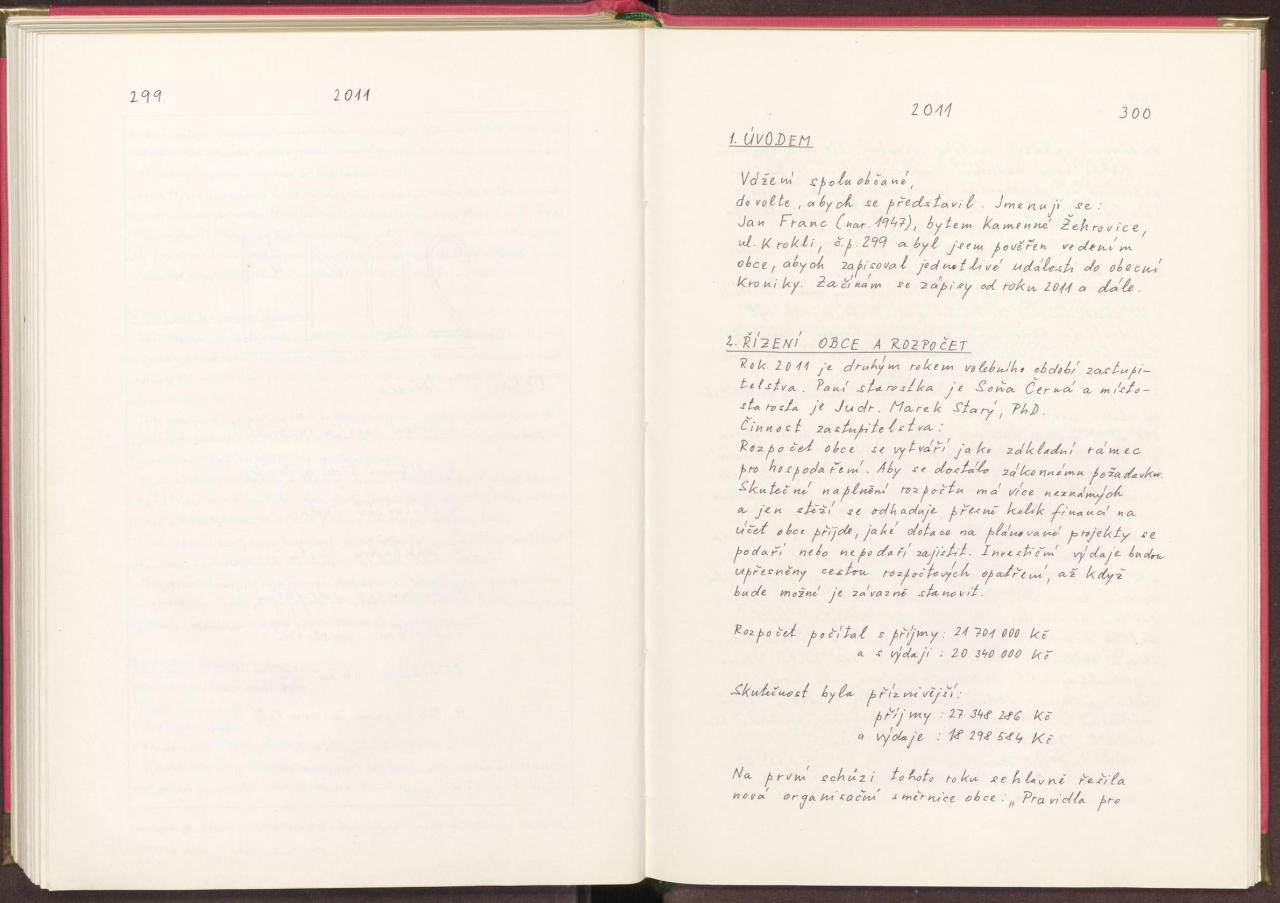 299 2011
2011 300
1. ÚVODEM
Vážení spoluobčané,
dovolte, abych se představil. Jmenuji se:
Jan Franc (nar. 1947), bytem Kamenné Žehrovice,
ul. Krokli, č.p. 299 a byl jsem pověřen vedením
obce, abych zapisoval jednotlivé události do obecní
kroniky. Začínám se zápisy od roku 2011 a dále.
2. ŘÍZENÍ OBCE A ROZPOČET
Rok 2011 je druhým rokem volebního období zastupi-
telstva. Paní starostka je Soňa Černá a místo-
starosta je Judr. Marek Starý, PhD.
Činnost zastupitelstva:
Rozpočet obce se vytváří jako základní rámec
pro hospodaření. Aby se dostálo zákonnému požadavku.
Skutečné naplnění rozpočtu má více neznámých
a jen stěží se odhaduje přesně kolik financí na
účet obce přijde, jaké dotace na plánované projekty se
podaří nebo nepodaří zajistit. Investiční výdaje budou
upřesněny cestou rozpočtových opatření, až když
bude možné je závazně stanovit.
Rozpočet počítal s příjmy: 21 701 000 Kč
a s výdaji: 20 340 000 Kč
Skutečnost byla příznivější:
příjmy: 27 348 286 Kč
a výdaje: 18 298 584 Kč
Na první schůzi tohoto roku se hlavně řešila
nová organisační směrnice obce: „Pravidla pro